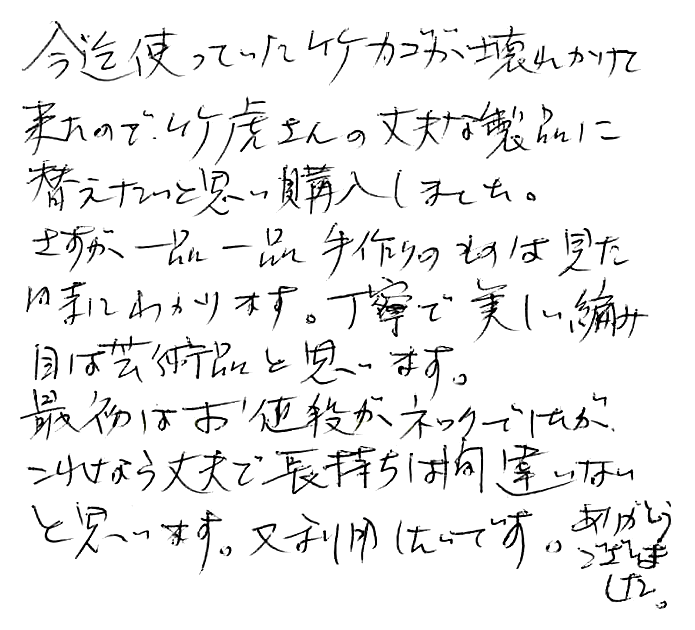 今迄使っていた竹カゴが壊れかけて
来たので、竹虎さんの丈夫な製品に
替えたいと思い購入しました。
さすが一品一品手作りのものは見た
時にわかります。丁寧で美しい編み
目は芸術品と思います。
最初はお値段がネックでしたが、
これなら丈夫で長持ちは間違いない
と思います。又利用したいです。
ありがとう
ございま
した。